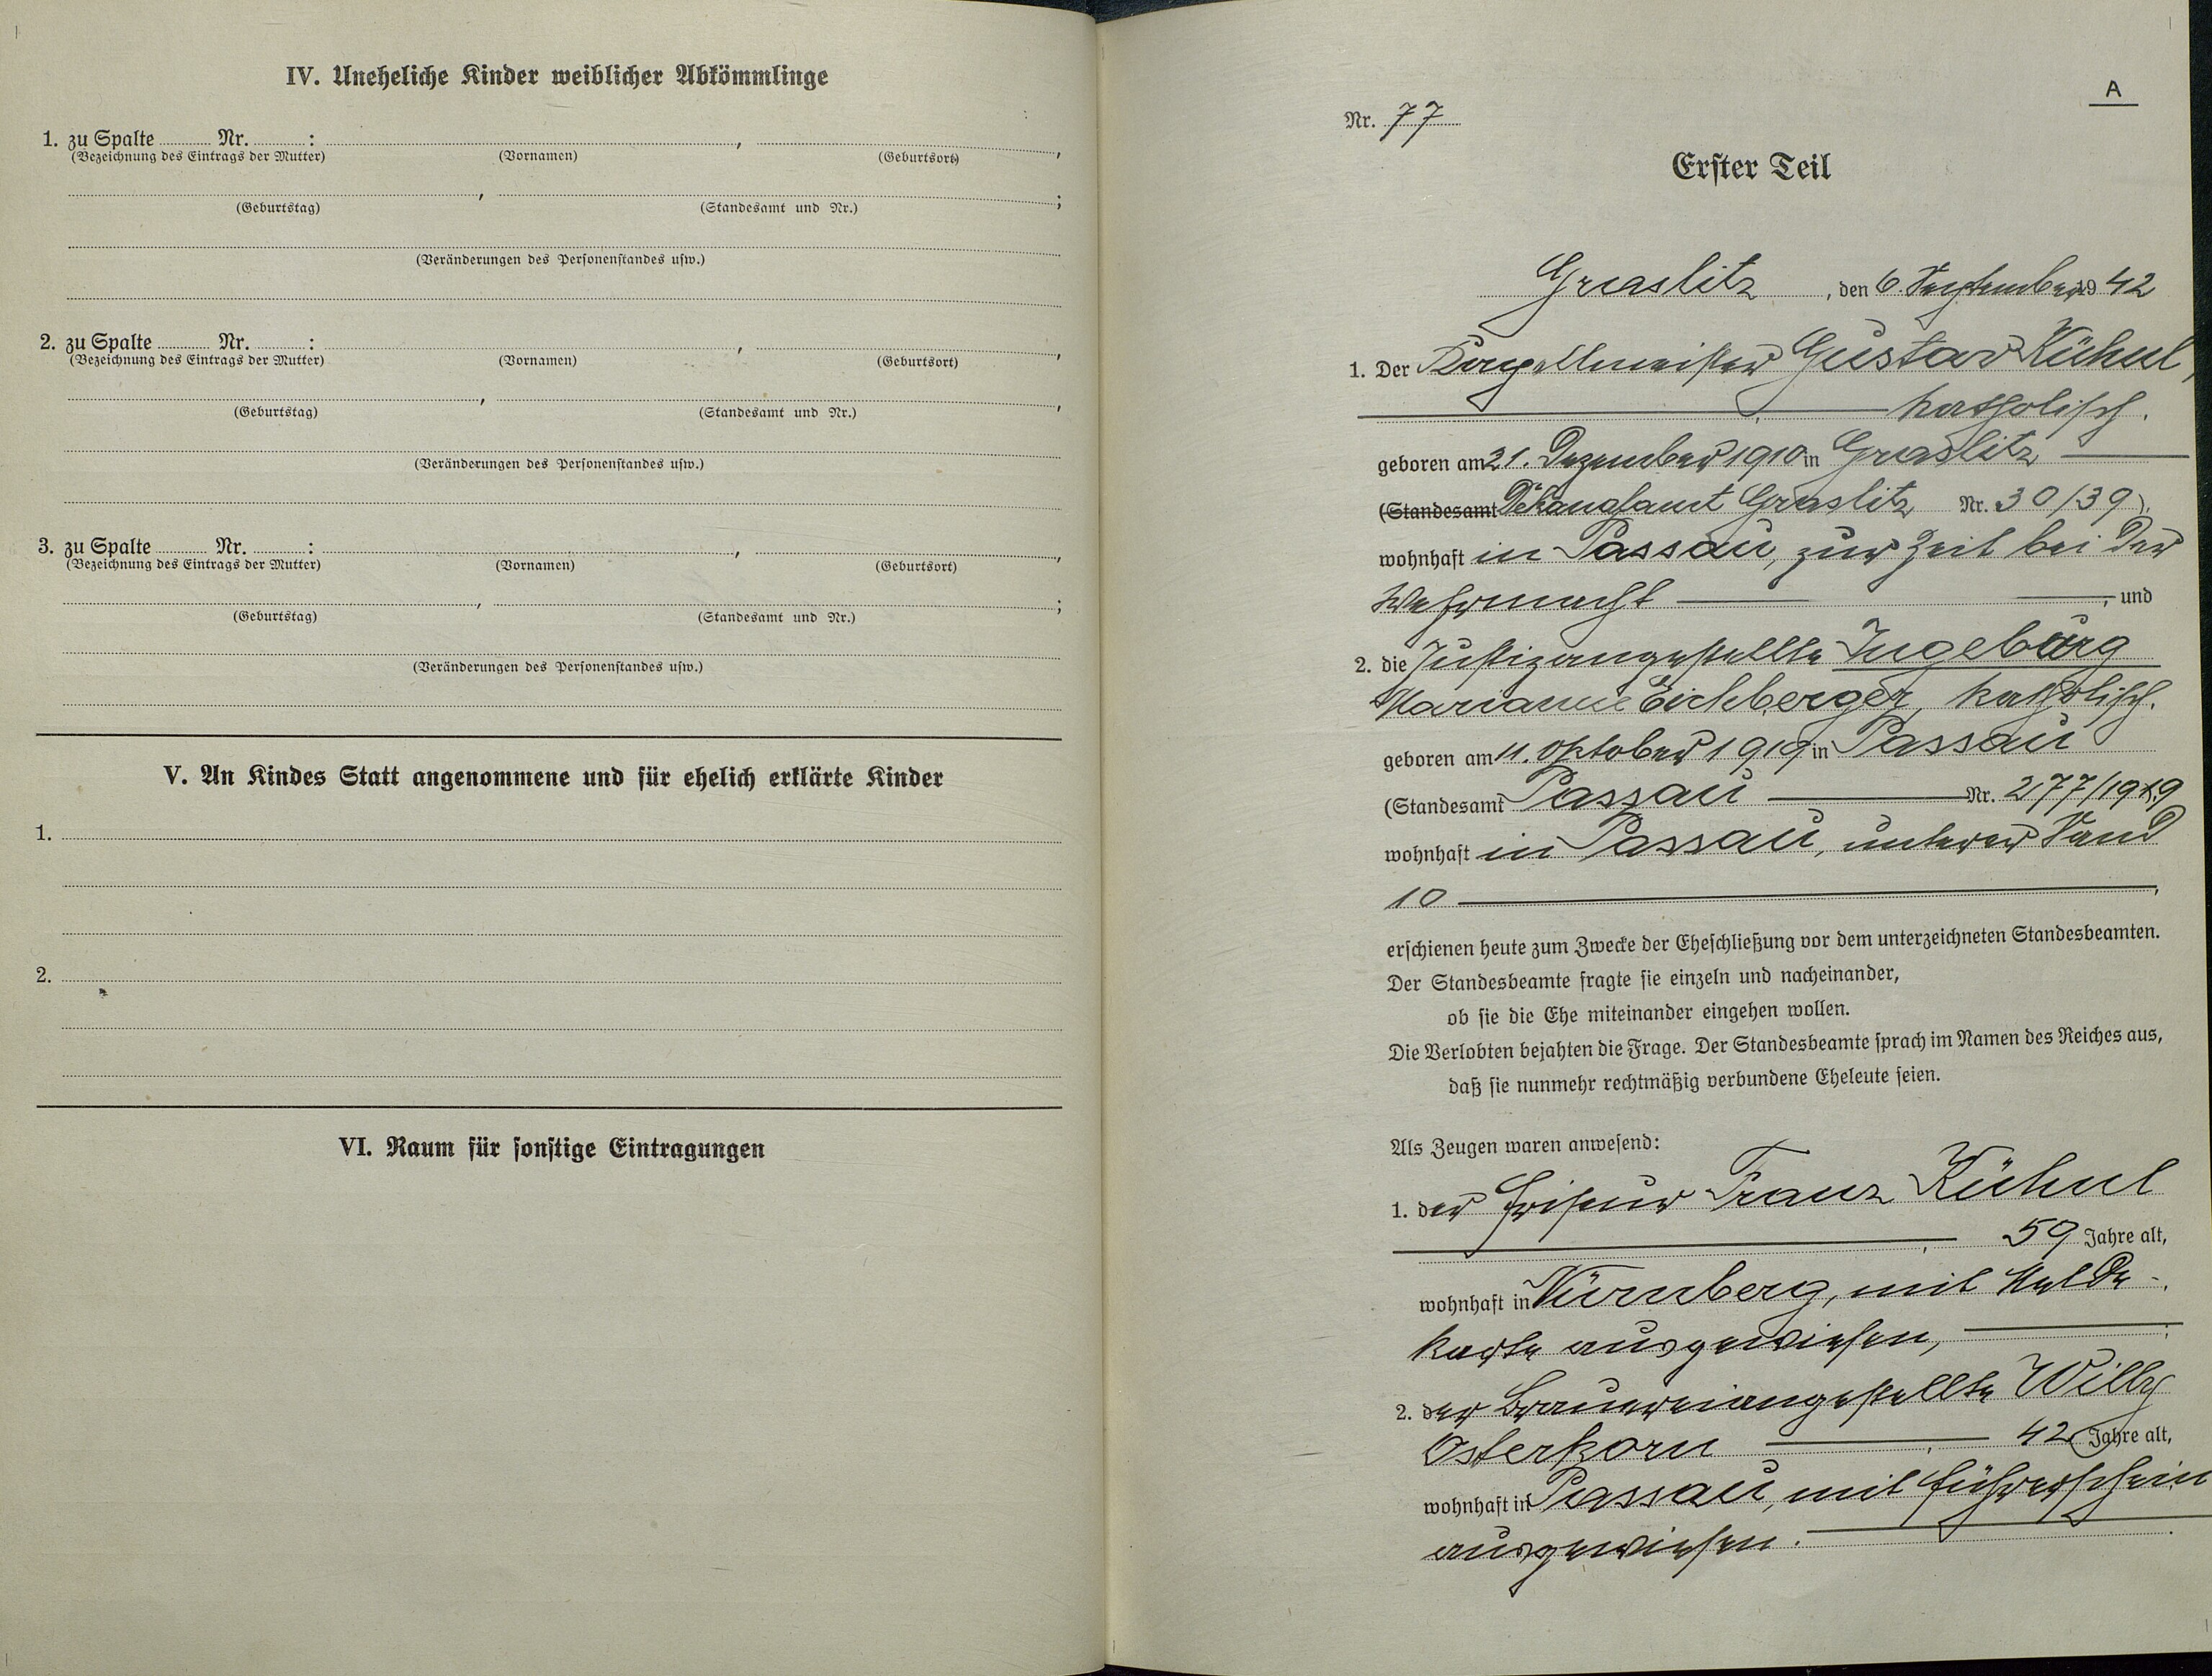 IV. Uneheliche Kinder weiblicher Abkömmlinge
1. zu Spalte ........ Nr. ........ : , ,
(Bezeichnung des Eintrags der Mutter) (Vornamen) (Geburtsort)
, ;
(Geburtstag) (Standesamt und Nr.)
(Veränderungen des Personenstandes usw.)
2. zu Spalte ........ Nr. ........ : , ,
(Bezeichnung des Eintrags der Mutter) (Vornamen) (Geburtsort)
, ,
(Geburtstag) (Standesamt und Nr.)
(Veränderungen des Personenstandes usw.)
3. zu Spalte ........ Nr. ........ : , ,
(Bezeichnung des Eintrags der Mutter) (Vornamen) (Geburtsort)
, ;
(Geburtstag) (Standesamt und Nr.)
(Veränderungen des Personenstandes usw.)
V. An Kindes Statt angenommene und für ehelich erklärte Kinder
1.
2.
VI. Raum für sonstige Eintragungen
A
Nr. 77
Erster Teil
Graslitz, den 6. September 1942
1. Der Kapellmeister Gustav Kühnl,
katholisch.
geboren am 21. Dezember 1910 in Graslitz
(Standesamt Dekanalamt Graslitz Nr. 30/39),
wohnhaft in Passau, zur Zeit bei der
Wehrmacht, und
2. die Justizangestellte Ingeburg
Marianne Eichberger, katholisch.
geboren am 11. Oktober 1919 in Passau
(Standesamt Passau Nr. 277/1919
wohnhaft in Passau, unterer Sand
10,
erschienen heute zum Zwecke der Eheschließung vor dem unterzeichneten Standesbeamten.
Der Standesbeamte fragte sie einzeln und nacheinander,
ob sie die Ehe miteinander eingehen wollen.
Die Verlobten bejahten die Frage. Der Standesbeamte sprach im Namen des Reiches aus,
daß sie nunmehr rechtmäßig verbundene Eheleute seien.
Als Zeugen waren anwesend:
1. der Friseur Franz Kühnl
, 59 Jahre alt,
wohnhaft in Nürnberg, mit Melde-
karte ausgewiesen,
2. der Brauereiangestellte Willy
Osterkorn, 42 Jahre alt,
wohnhaft in Passau, mit Führerschein
ausgewiesen.